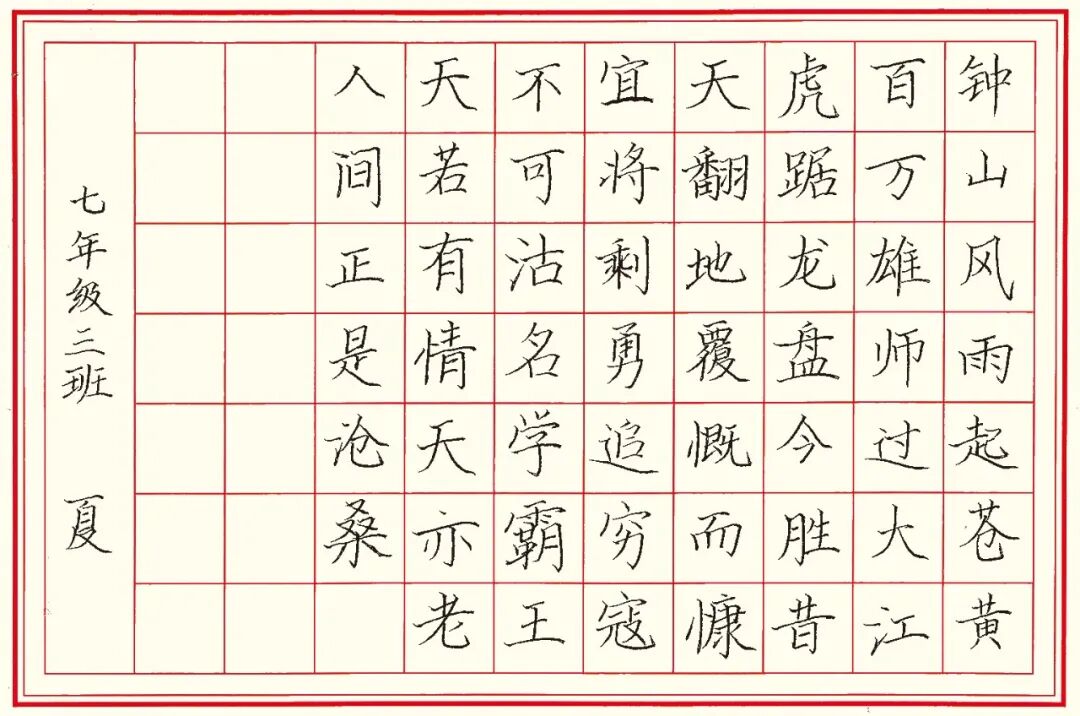 钟山风雨起苍黄
百万雄师过大江
虎踞龙盘今胜昔
天翻地覆慨而慷
宜将剩勇追穷寇
不可沽名学霸王
天若有情天亦老
人间正是沧桑
七年级三班 夏